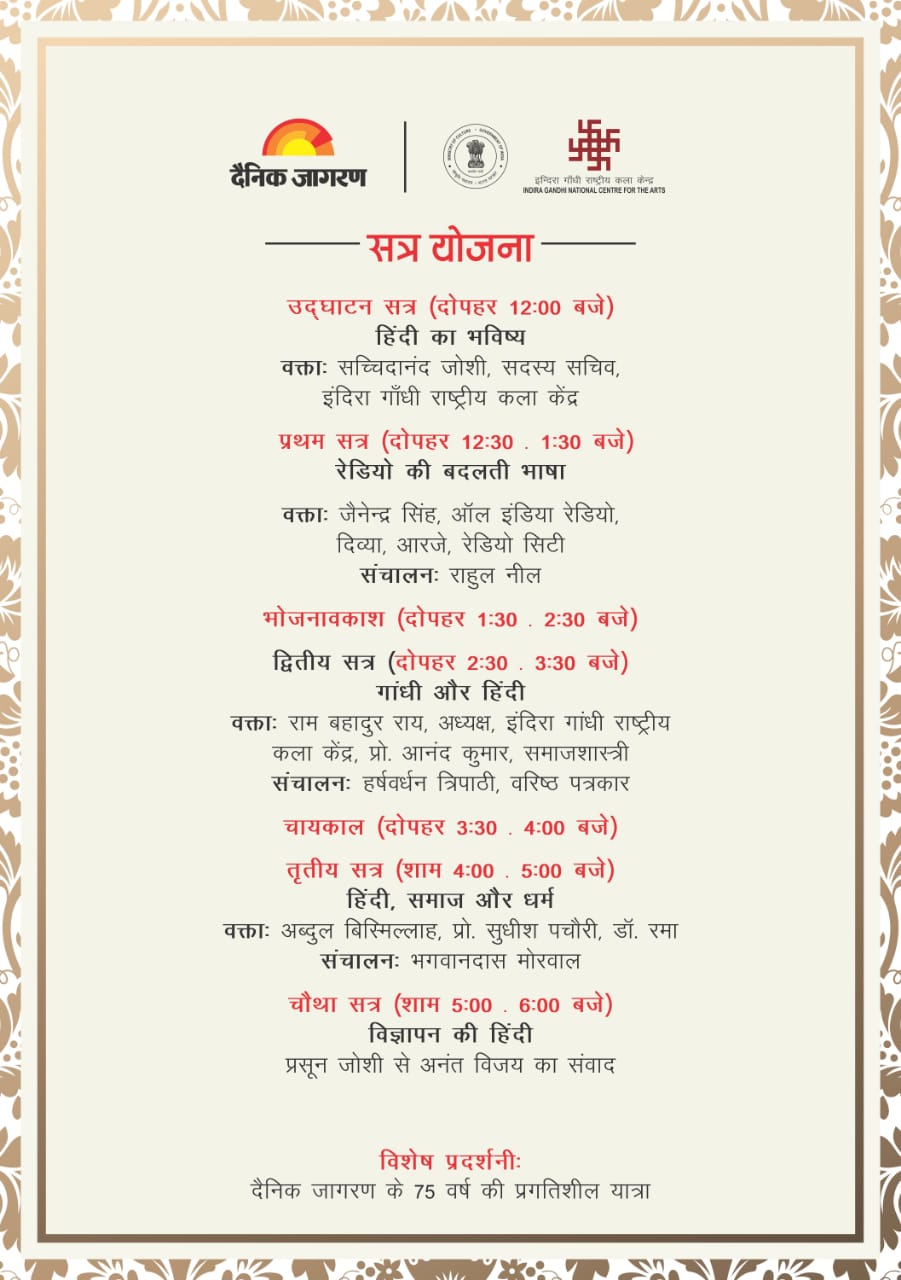 दैनिक जागरण
MINISTRY OF CULTURE - GOVERNMENT OF INDIA
इन्दिरा गाँधी राष्ट्रीय कला केन्द्र
INDIRA GANDHI NATIONAL CENTRE FOR THE ARTS
सत्र योजना
उद्घाटन सत्र (दोपहर 12:00 बजे)
हिंदी का भविष्य
वक्ताः सच्चिदानंद जोशी, सदस्य सचिव,
इंदिरा गाँधी राष्ट्रीय कला केंद्र
प्रथम सत्र (दोपहर 12:30 . 1:30 बजे)
रेडियो की बदलती भाषा
वक्ताः जैनेन्द्र सिंह, ऑल इंडिया रेडियो,
दिव्या, आरजे, रेडियो सिटी
संचालनः राहुल नील
भोजनावकाश (दोपहर 1:30 . 2:30 बजे)
द्वितीय सत्र (दोपहर 2:30 . 3:30 बजे)
गांधी और हिंदी
वक्ताः राम बहादुर राय, अध्यक्ष, इंदिरा गांधी राष्ट्रीय
कला केंद्र, प्रो. आनंद कुमार, समाजशास्त्री
संचालनः हर्षवर्धन त्रिपाठी, वरिष्ठ पत्रकार
चायकाल (दोपहर 3:30 . 4:00 बजे)
तृतीय सत्र (शाम 4:00 . 5:00 बजे)
हिंदी, समाज और धर्म
वक्ताः अब्दुल बिस्मिल्लाह, प्रो. सुधीश पचौरी, डॉ. रमा
संचालनः भगवानदास मोरवाल
चौथा सत्र (शाम 5:00 . 6:00 बजे)
विज्ञापन की हिंदी
प्रसून जोशी से अनंत विजय का संवाद
विशेष प्रदर्शनीः
दैनिक जागरण के 75 वर्ष की प्रगतिशील यात्रा